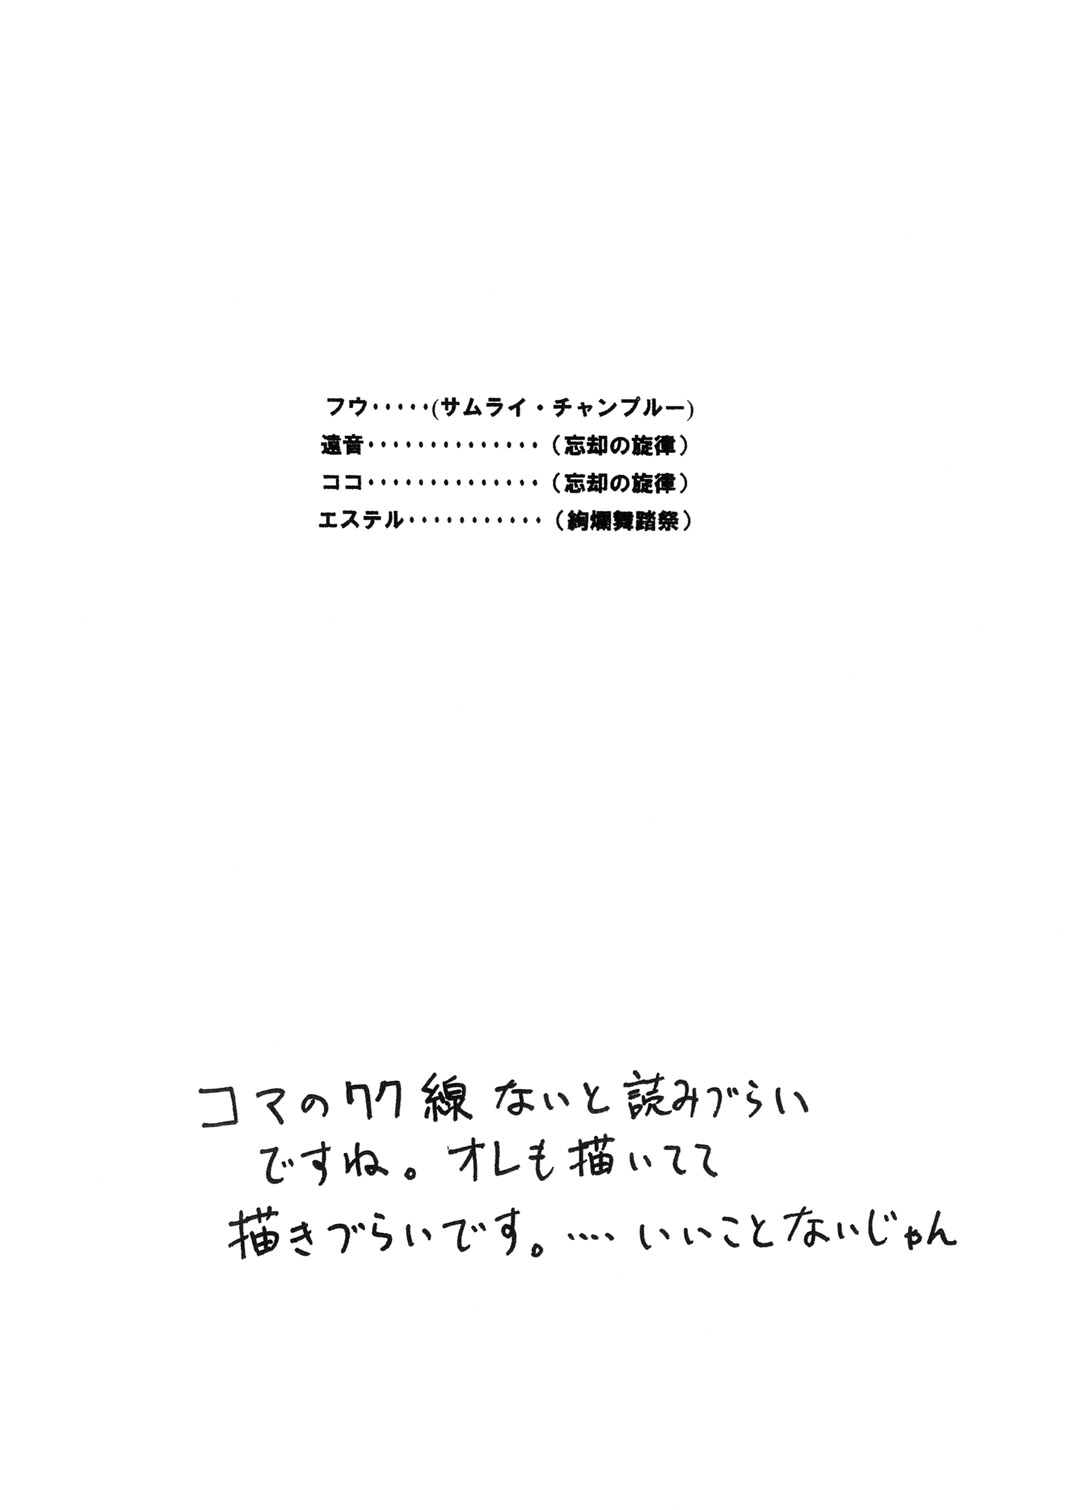 フウ・・・・・(サムライ・チャンプルー)
遠音・・・・・・・・・・・・・・（忘却の旋律）
ココ・・・・・・・・・・・・・・（忘却の旋律）
エステル・・・・・・・・・・・（絢爛舞踏祭）
コマのワク線ないと読みづらい
ですね。オレも描いてて
描きづらいです。‥‥いいことないじゃん